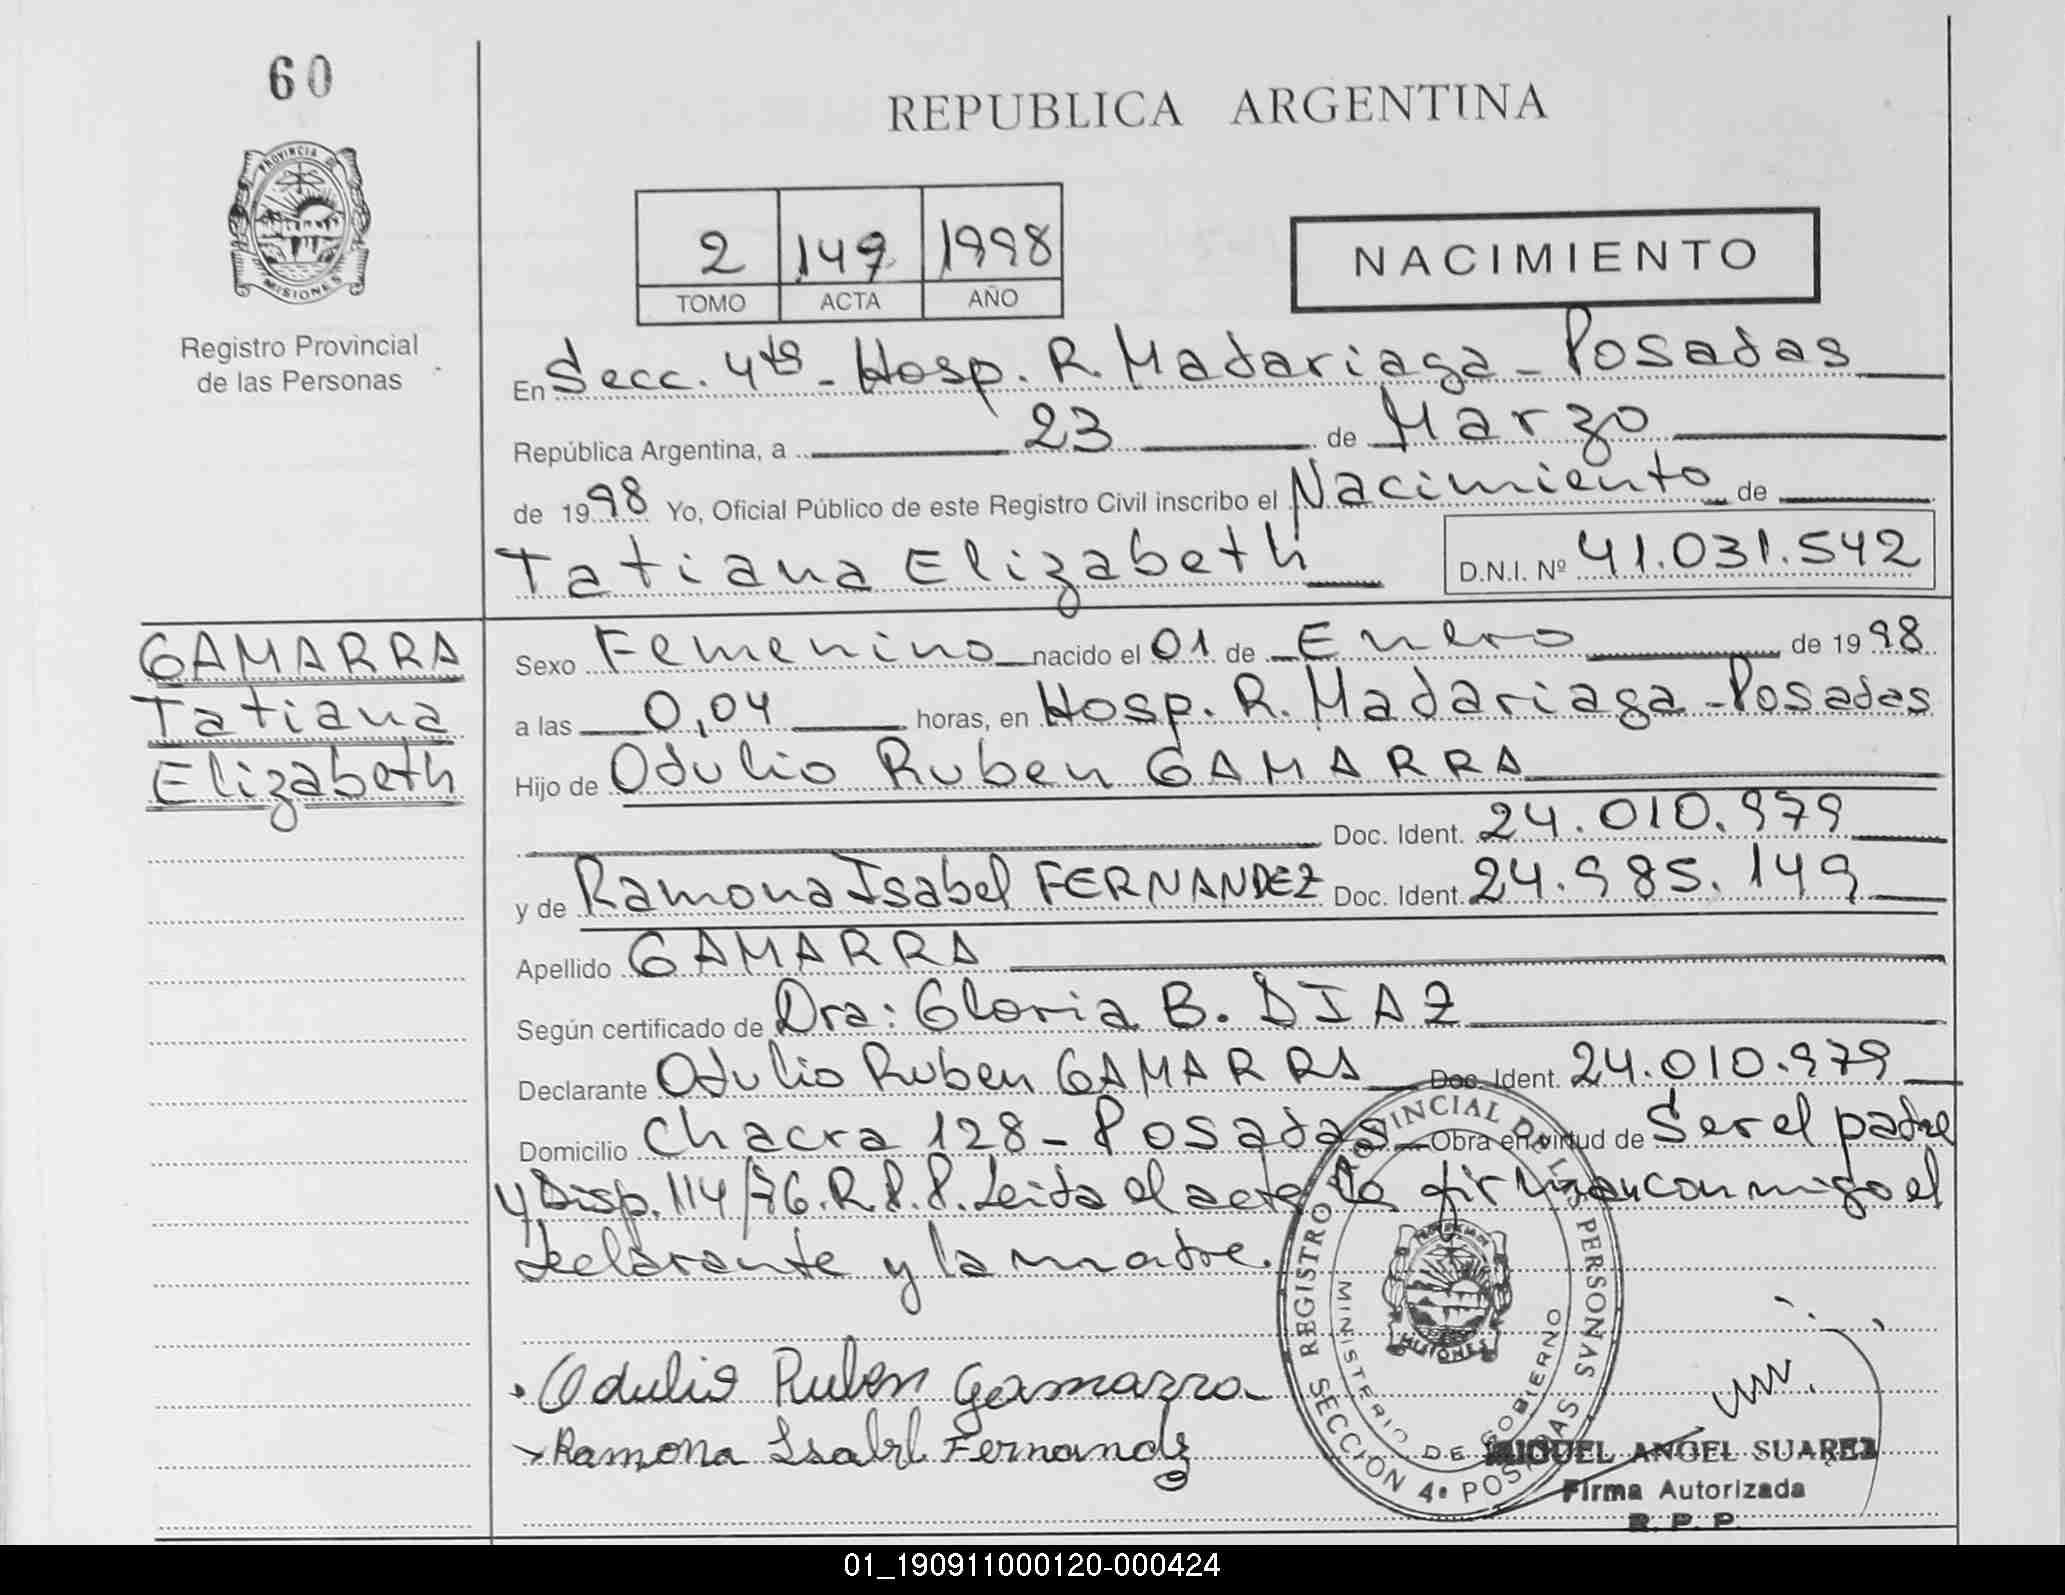 60
PROVINCIA DE
MISIONES
Registro Provincial
de las Personas
REPUBLICA ARGENTINA
2 149 1998
TOMO ACTA AÑO
NACIMIENTO
En Secc. 4ta - Hosp. R. Madariaga - Posadas
República Argentina, a 23 de Marzo
de 1998 Yo, Oficial Público de este Registro Civil inscribo el Nacimiento de
Tatiana Elizabeth D.N.I. Nº 41.031.542
GAMARRA
Tatiana
Elizabeth
Sexo Femenino nacido el 01 de Enero de 1998
a las 0,04 horas, en Hosp. R. Madariaga - Posadas
Hijo de Odulio Ruben GAMARRA
Doc. Ident. 24.010.979
y de Ramona Isabel FERNANDEZ Doc. Ident. 24.985.149
Apellido GAMARRA
Según certificado de Dra: Gloria B. DIAZ
Declarante Odulio Ruben GAMARRA Doc. Ident. 24.010.979
Domicilio Chacra 128 - Posadas Obra en virtud de Ser el padre
y Disp. 114/76. R.P.P. Leida el acta la firman conmigo el
declarante y la madre.
Odulio Ruben Gamarra
Ramona Isabel Fernandez
REGISTRO PROVINCIAL DE LAS PERSONAS
MINISTERIO DE GOBIERNO
SECCIÓN 4ª POSADAS
MISIONES
MIGUEL ANGEL SUAREZ
Firma Autorizada
R. P. P.
01_190911000120-000424